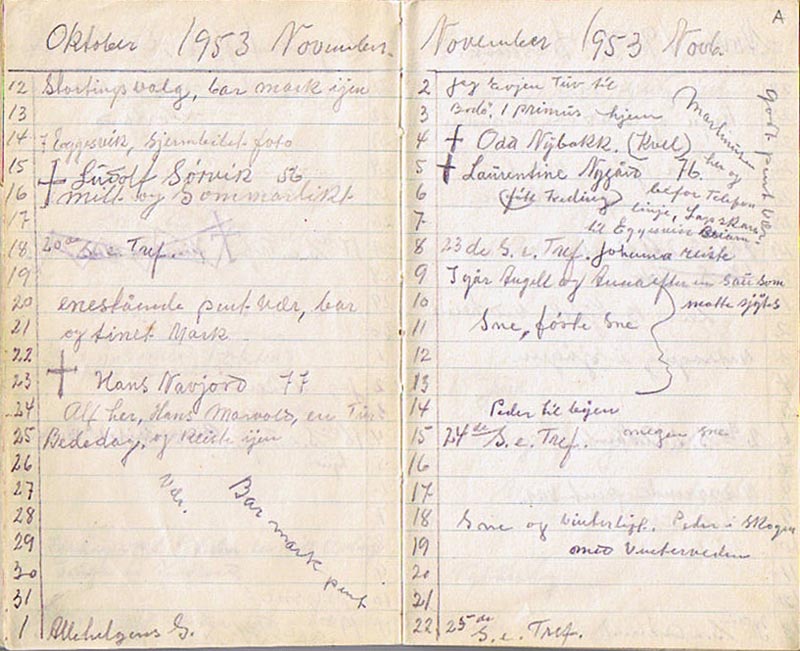 Oktober 1953 November.
12 Stortingsvalg, bar mark ijen
13
14 I Eggesvik, Hjermbeitet foto
15 + Ludolf Sørvik 56
16 milt og sommarlikt
17
18 20de S. e. Tref.
19
20 enestående pent vær, bar
21 og tinet Mark
22
23 + Hans Navjord 77
24 Alf her, Hans Marvold, en Tur
25 Bededag, og reiste ijen
26
27 Vær.
28 Bar mark pent
29
30
31
1 Allehelgens S.
A
November 1953 Novb.
2 Jeg Evjen Tur til
3 Bodø. 1 primus hjem
4 + Oda Nybakk. (Kvel)
5 + Laurentine Nygård 76.
6 (født Freding)
7
Martinus
her og
befor Telefon
linje,
til Eggesvik
godt pent vær
8 23de S. e. Tref. Johanna reiste
9 I går Angell og Anna efter en sau som
10 måtte sjytes
11 Sne, første Sne
12
13
14 Peder til byen
15 24de S. e. Tref. megen sne
16
17
18 Sne og vinterligt. Peder i Skogen
19 med Vinterveden
20
21
22 25de S. e. Tref.